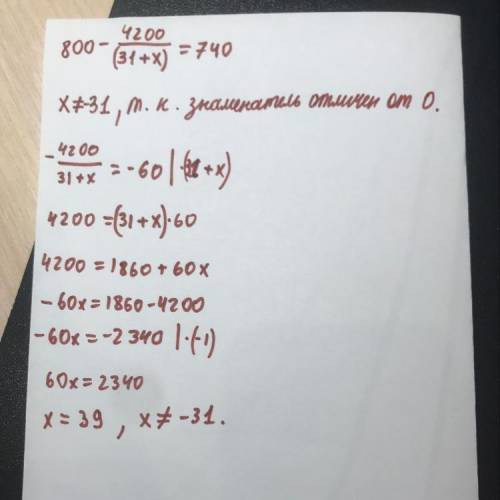 800 - 4200/(31+x) = 740
x≠-31, т. к. знаменатель отличен от 0.
-4200/31+x = -60 | ·(31+x)
4200 = (31+x)·60
4200 = 1860 + 60x
-60x = 1860 - 4200
-60x = -2340 | ·(-1)
60x = 2340
x = 39 , x ≠ -31.